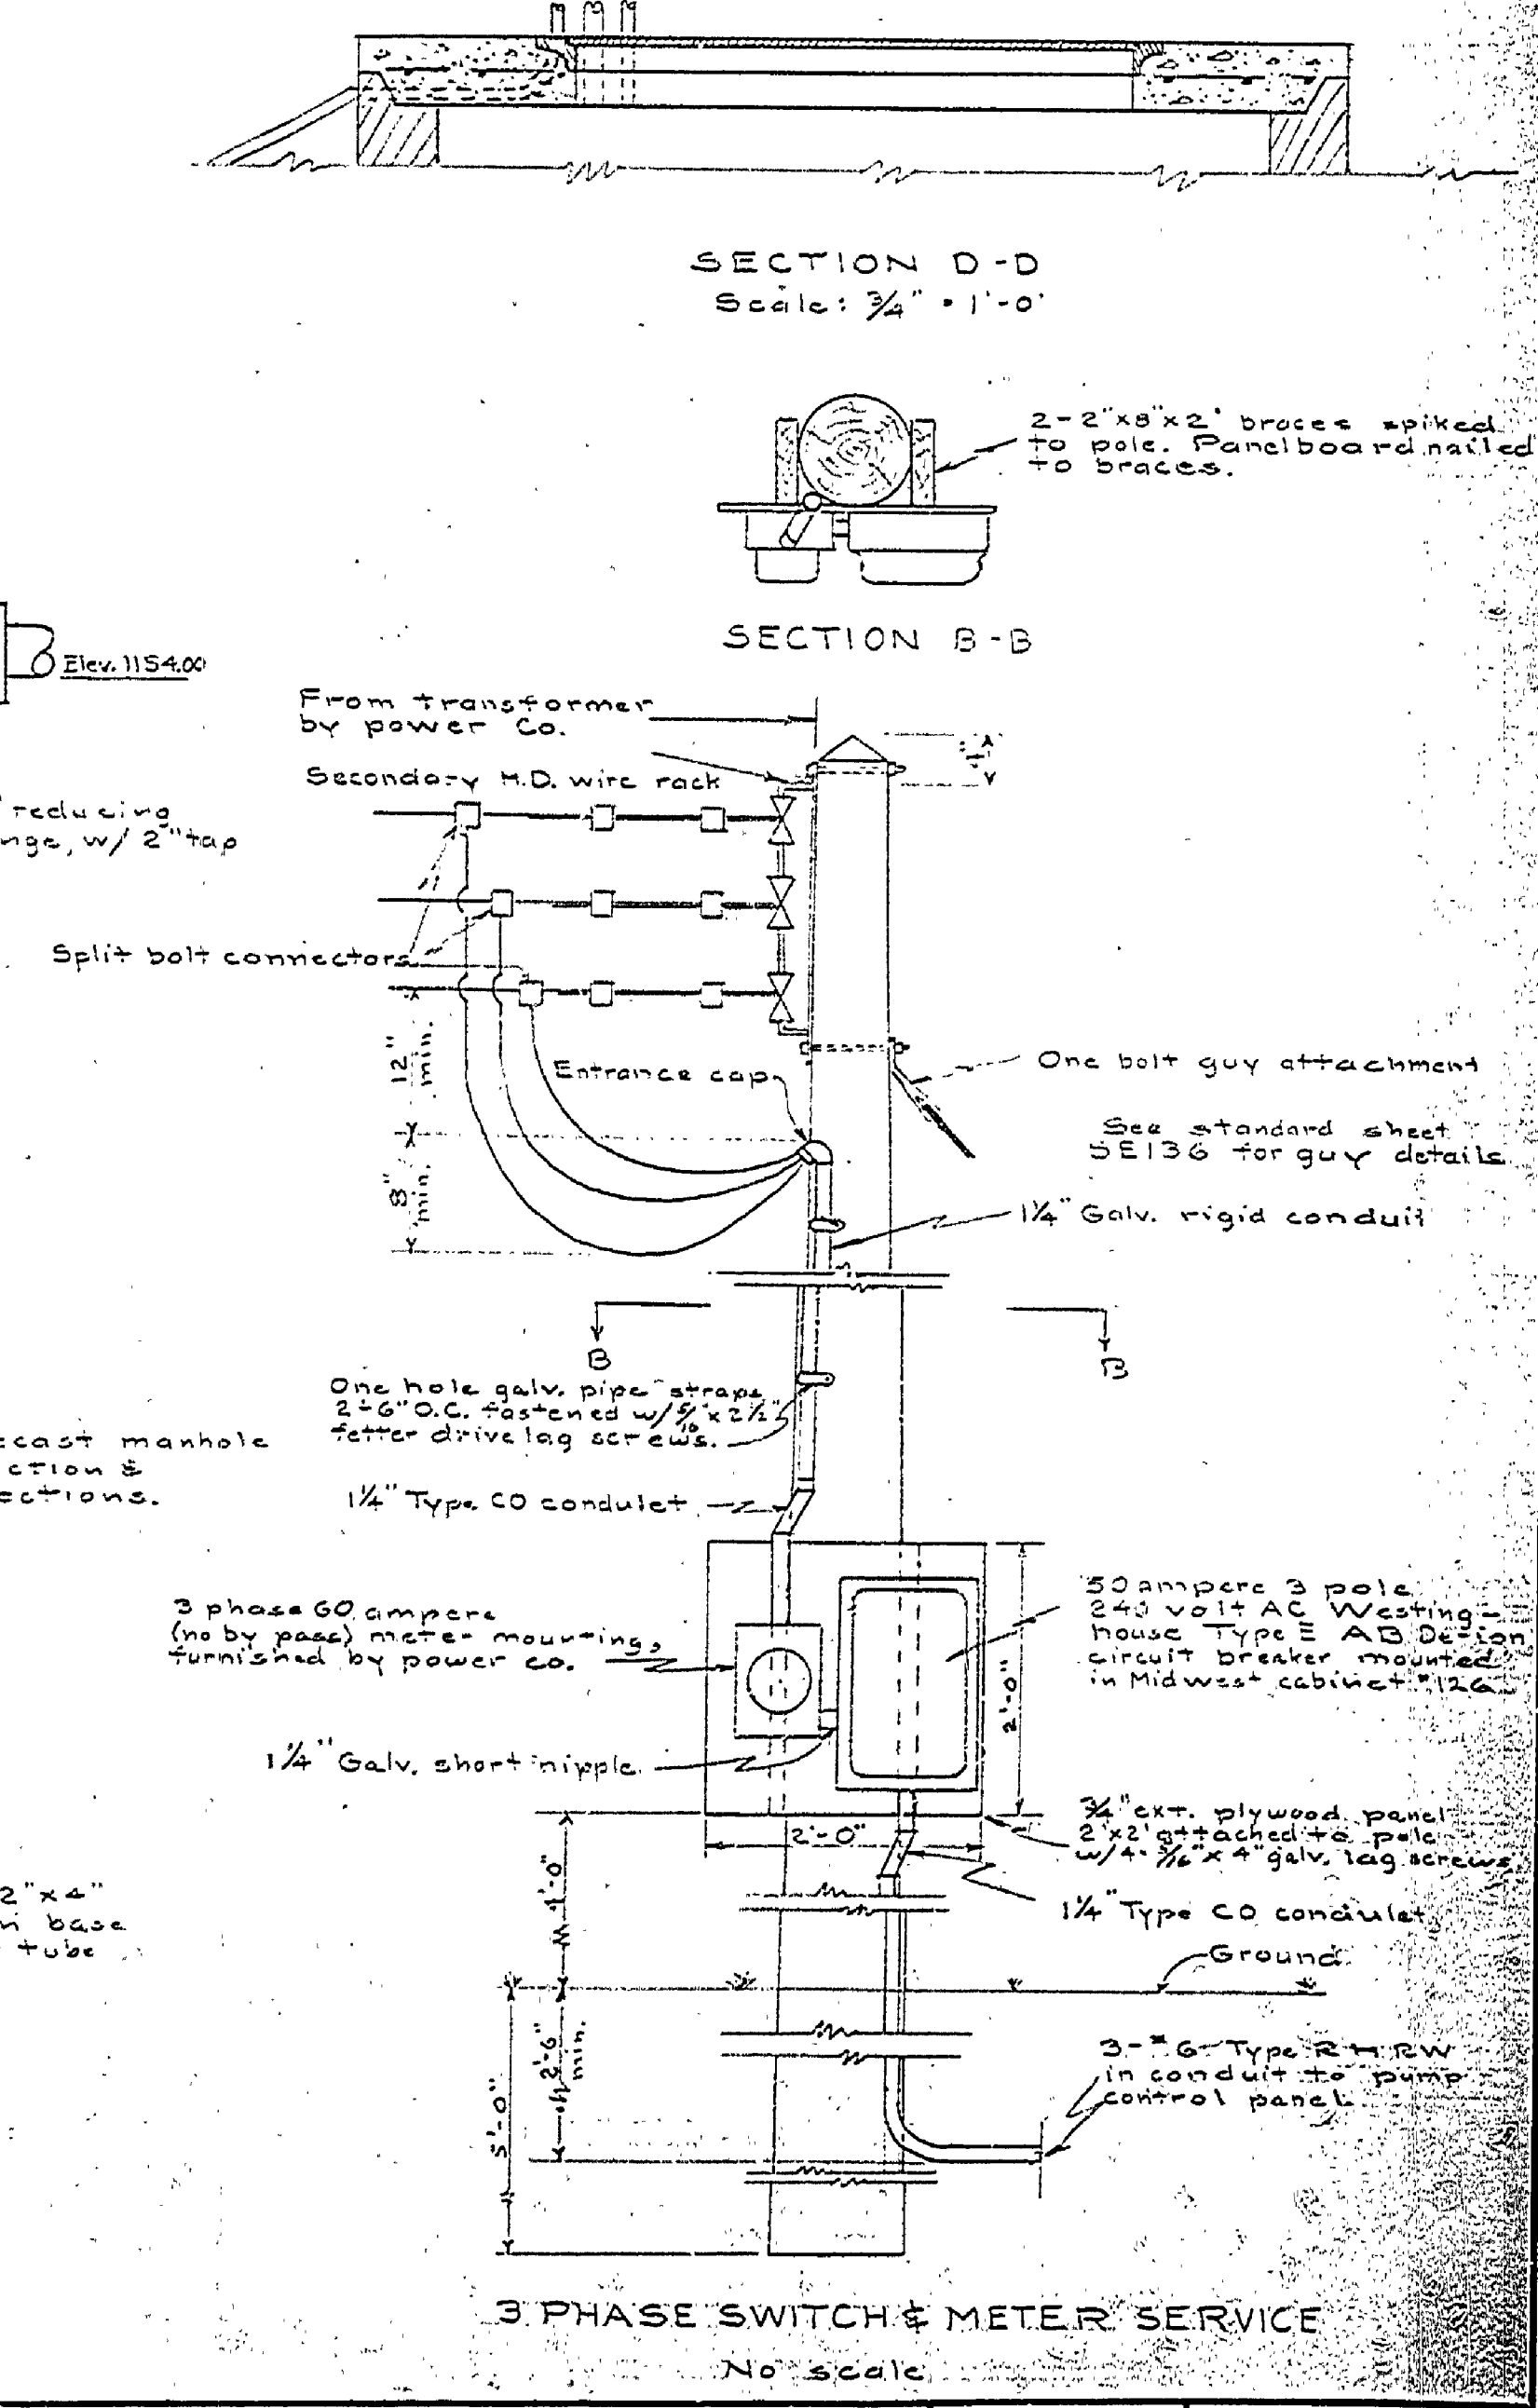 SECTION D-D
Scale: 3/4" = 1'-0"
2-2"x8"x2' braces spiked
to pole. Panelboard nailed
to braces.
SECTION B-B
Elev. 1154.00
From transformer
by power Co.
Secondary H.D. wire rack
reducing
nge, w/ 2" tap
Split bolt connectors
12"
min.
8"
min.
Entrance cap
One bolt guy attachment
See standard sheet
SE136 for guy details
1 1/4" Galv. rigid conduit
B
B
One hole galv. pipe straps
2'-6" O.C. fastened w/ 5/16" x 2 1/2"
fetter drive lag screws.
ecast manhole
ction &
ections.
1 1/4" Type CO condulet
3 phase 60 ampere
(no by pass) meter mounting,
furnished by power co.
50 ampere 3 pole
240 volt AC Westing-
house Type E AB De-ion
circuit breaker mounted
in Midwest cabinet
2'-0"
1 1/4" Galv. short nipple
3/4" ext. plywood panel
2'x2' attached to pole
w/4- 5/16" x 4" galv. lag screws
2'-0"
4'-0"
1 1/4" Type CO condulet
2"x4"
n base
tube
Ground
2'-6"
min.
5'-0"
3-#6-Type RHRW
in conduit to pump
control panel
3 PHASE SWITCH & METER SERVICE
No scale